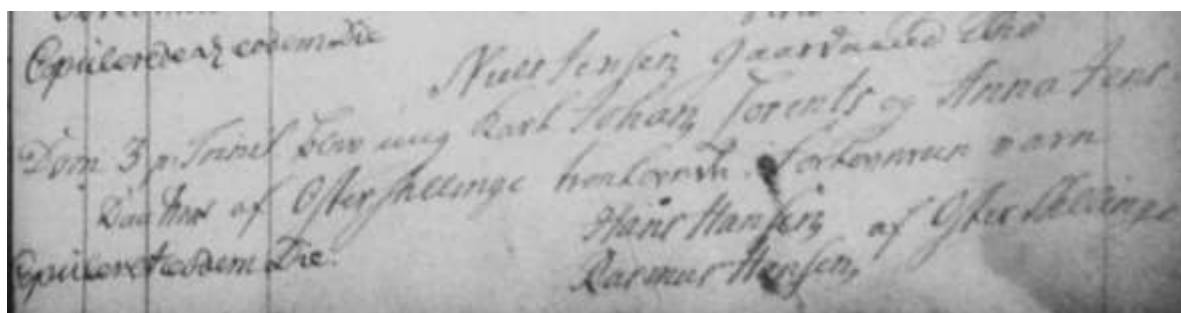 Copuleredeaz eodem Die
Niels Jensen Gaardmand ibid
Dom 3 p. Trinit blev ung Karl Johan Lorents og Anna Jens
Daatter af Øster Skellinge trolovede. Forloverne varn
Hans Hansen af Øster Skellinge
Copuleret eodem Die.
Rasmus Hansen,